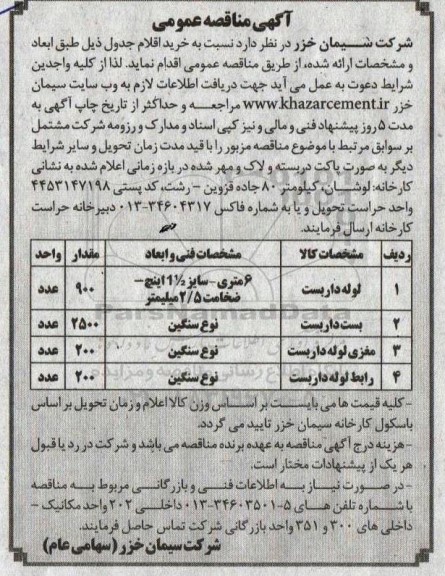 آگهی مناقصه عمومی
شرکت سیمان خزر در نظر دارد نسبت به خرید اقلام جدول ذیل طبق ابعاد
و مشخصات ارائه شده، از طریق مناقصه عمومی اقدام نماید. لذا از کلیه واجدین
شرایط دعوت به عمل می آید جهت دریافت اطلاعات لازم به وب سایت سیمان
خزر www.khazarcement.ir مراجعه و حداکثر از تاریخ چاپ آگهی به
مدت ۵ روز پیشنهاد فنی و مالی و نیز کپی اسناد و مدارک و رزومه شرکت مشتمل
بر سوابق مرتبط با موضوع مناقصه مزبور را با قید مدت زمان تحویل و سایر شرایط
دیگر به صورت پاکت دربسته و لاک و مهر شده در بازه زمانی اعلام شده به نشانی
کارخانه: لوشان، کیلومتر ۸۰ جاده قزوین - رشت، کد پستی ۴۴۵۳۱۴۷۱۹۸
واحد حراست تحویل و یا به شماره فاکس ۳۴۶۰۴۳۱۷-۰۱۳ دبیرخانه حراست
کارخانه ارسال فرمایند.
ردیف مشخصات کالا مشخصات فنی و ابعاد مقدار واحد
۱ لوله داربست ۶ متری - سایز ½ ۱ اینچ - ضخامت ۲/۵ میلیمتر ۹۰۰ عدد
۲ بست داربست نوع سنگین ۲۵۰۰ عدد
۳ مغزی لوله داربست نوع سنگین ۲۰۰ عدد
۴ رابط لوله داربست نوع سنگین ۲۰۰ عدد
- کلیه قیمت ها می بایست بر اساس وزن کالا اعلام و زمان تحویل بر اساس
باسکول کارخانه سیمان خزر تایید می گردد.
- هزینه درج آگهی مناقصه به عهده برنده مناقصه می باشد و شرکت در رد یا قبول
هر یک از پیشنهادات مختار است.
- در صورت نیاز به اطلاعات فنی و بازرگانی مربوط به مناقصه
با شماره تلفن های ۵-۳۴۶۰۳۵۰۱-۰۱۳ داخلی ۲۰۲ واحد مکانیک -
داخلی های ۳۰۰ و ۳۵۱ واحد بازرگانی شرکت تماس حاصل فرمایند.
شرکت سیمان خزر (سهامی عام)
ParsNamadData